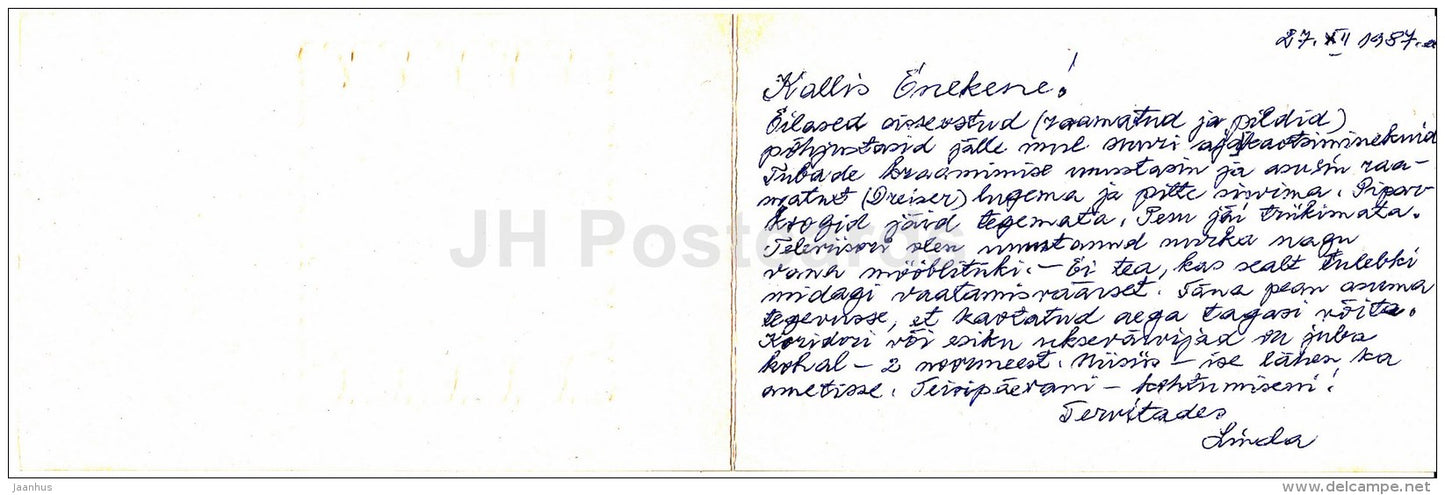 27. XII 1987.a
Kallis Õnekene!
Eilased sisseostud (raamatud ja pildid)
põhjustasid jälle mul suuri ajakaotsiminekuid
Tubade kraamimise unustasin ja asusin raa-
matut (Dreiser) lugema ja pilte sirvima. Pipar-
koogid jäid tegemata. Pesu jäi triikimata.
Televiisori olen unustanud nurka nagu
vana mööblitüki. – Ei tea, kas sealt tulebki
midagi vaatamisväärset. Täna pean asuma
tegevusse, et kaotatud aega tagasi võita.
Koridori või esiku uksevärvijad on juba
kohal – 2 noormeest. Niisiis – ise lähen ka
ametisse. Teisipäevani – kohtumiseni!
Tervitades
Linda
JH Postcards
Jaanhus
www.delcampe.net